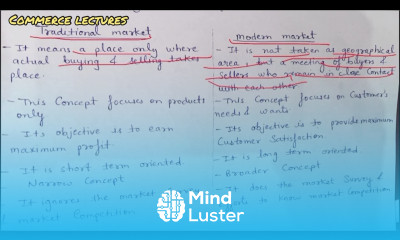 COMMERCE LECTURES
Traditional market
- It means a place only where
actual buying & selling takes
place.
- This Concept focuses on products
only
- Its objective is to earn
maximum profit.
- It is short term oriented.
Narrow Concept
- It ignores the market
market Competition
modern market
- It is not taken as geographical
area, but a meeting of buyers &
sellers who remain in close Contact
with each other
- This Concept focuses on Customer's
needs & wants
- Its objective is to provide maximum
Customer Satisfaction.
- It is long term oriented
- Broader Concept
- It does the market Survey &
to know market Competition
Mind
Luster